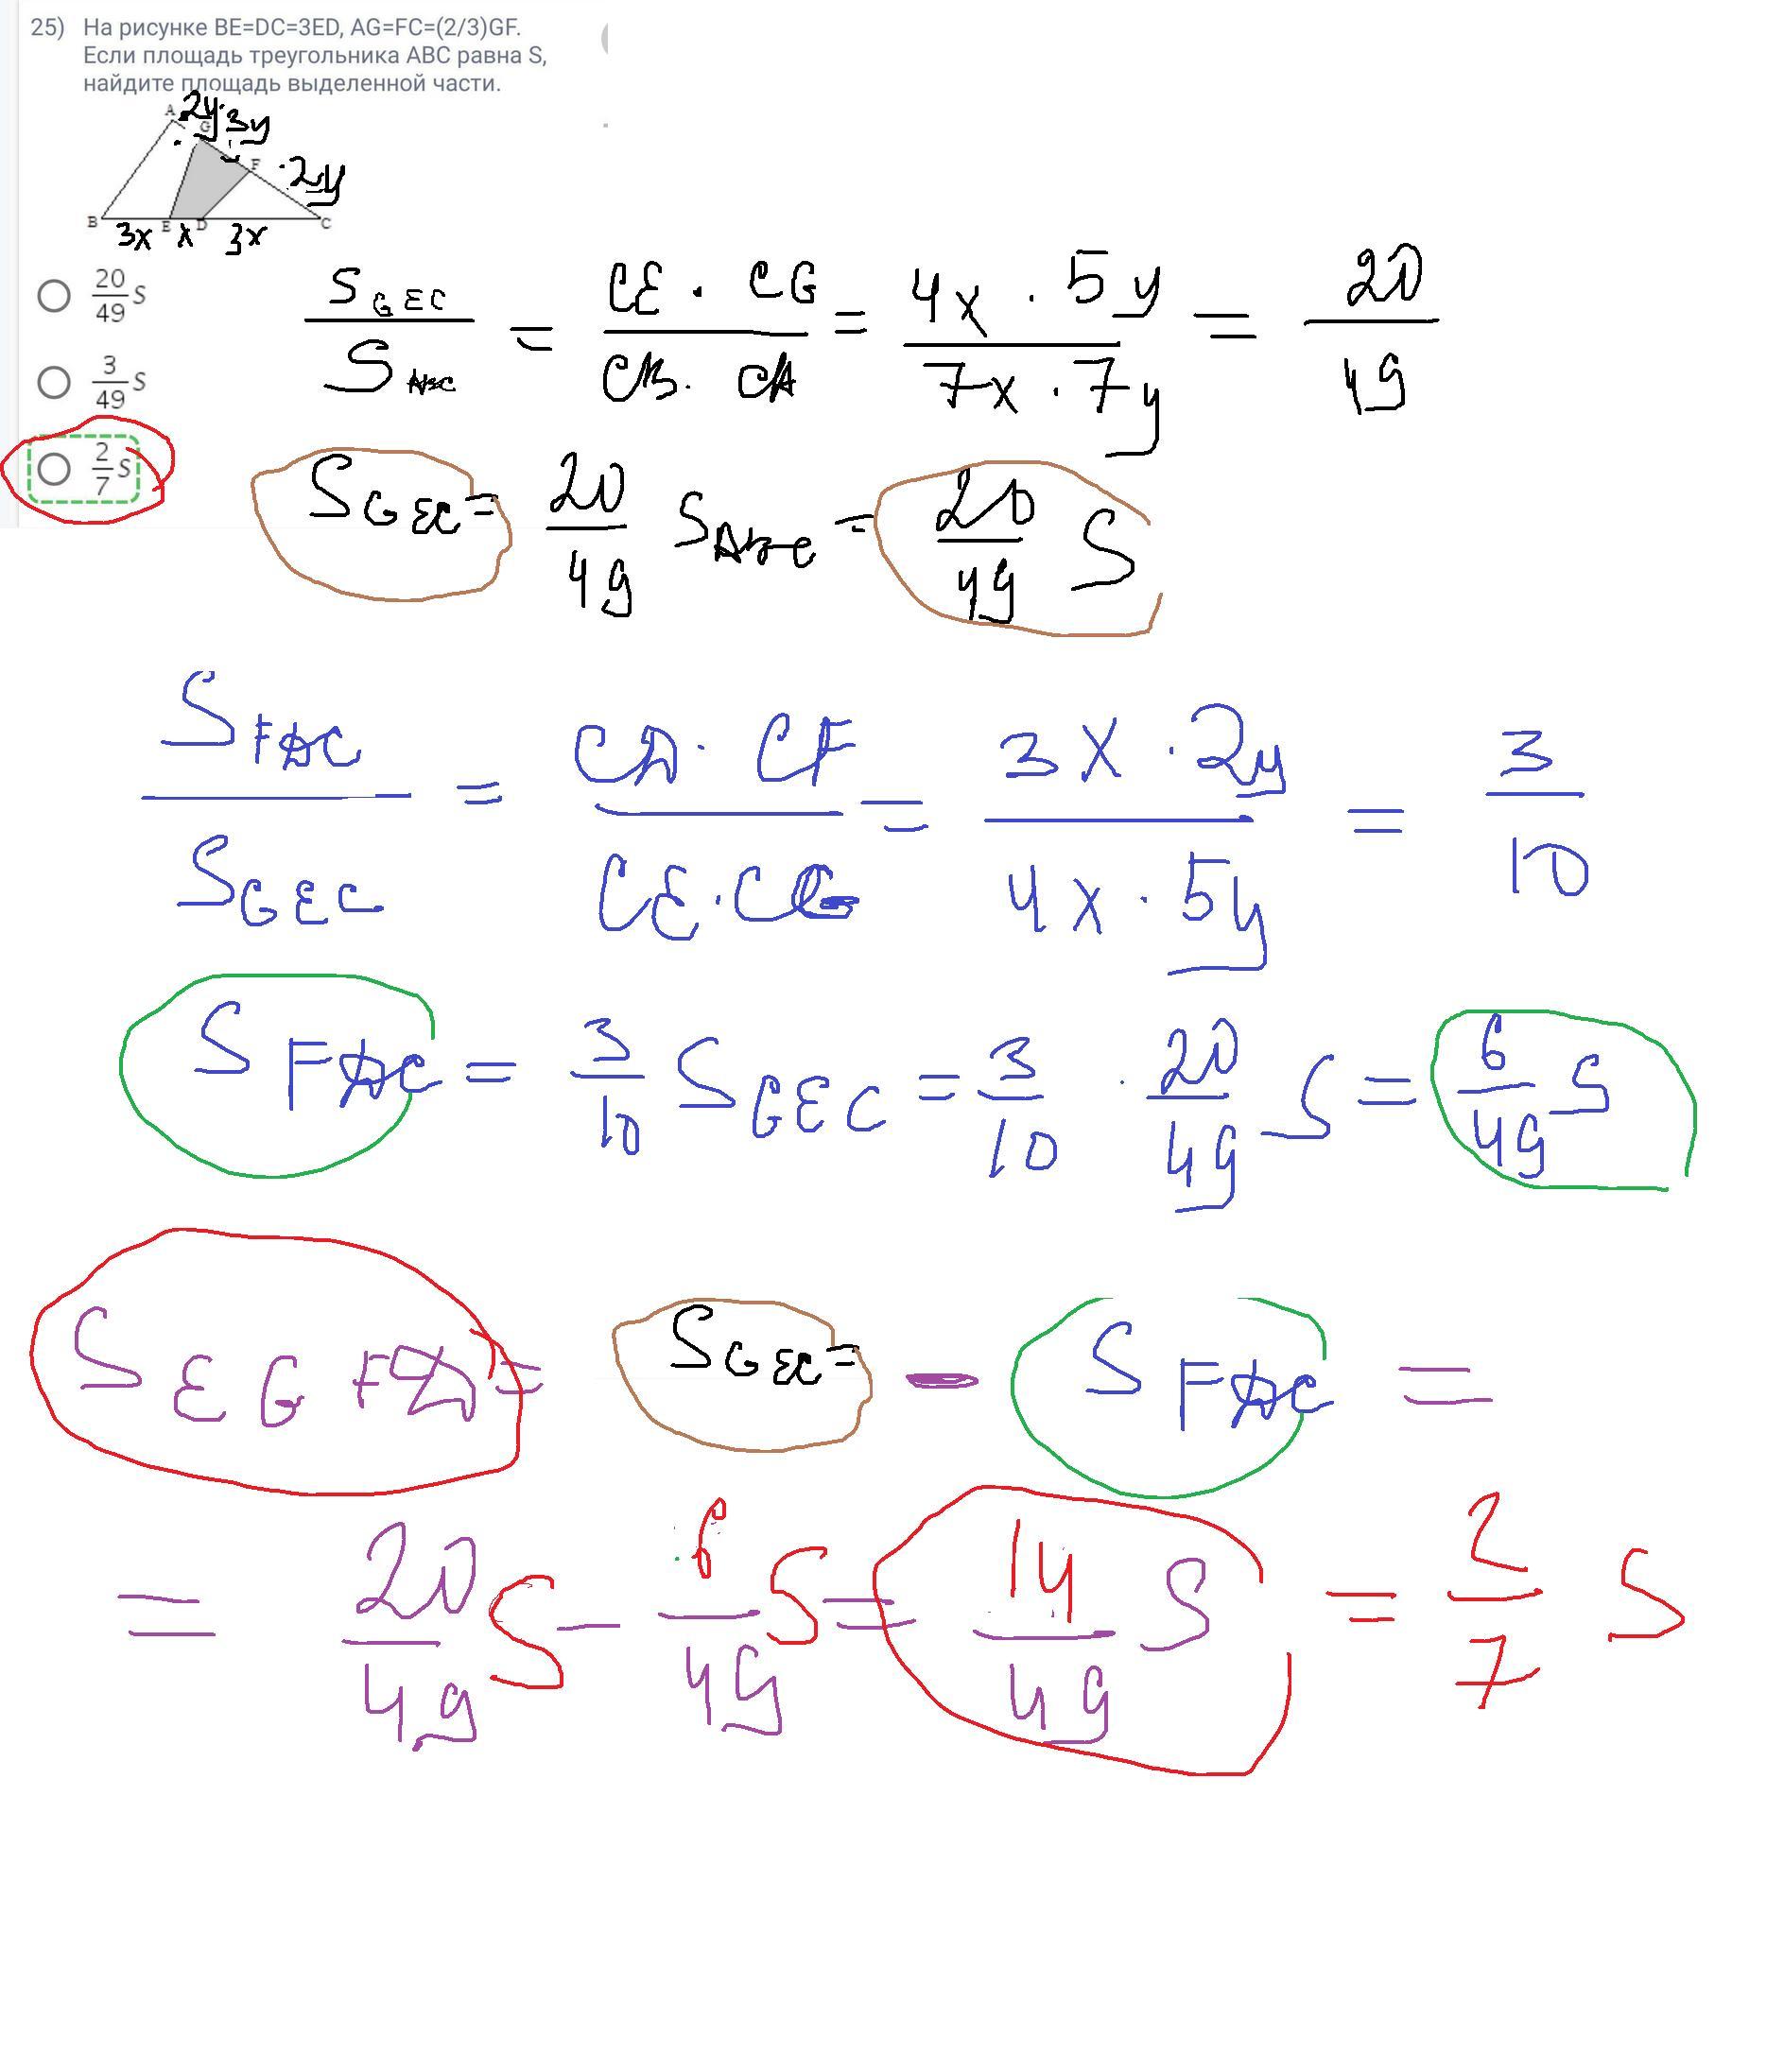 25) На рисунке BE=DC=3ED, AG=FC=(2/3)GF.
Если площадь треугольника ABC равна S,
найдите площадь выделенной части.
A 2y G 3y F 2y
B 3x E x D 3x C
20/49 S
3/49 S
2/7 S
S GEC / S ABC = CE · CG / CB · CA = 4x · 5y / 7x · 7y = 20/49
S GEC = 20/49 S ABC = 20/49 S
S FDC / S GEC = CD · CF / CE · CG = 3x · 2y / 4x · 5y = 3/10
S FDC = 3/10 S GEC = 3/10 · 20/49 S = 6/49 S
S EGFD = S GEC = - S FDC =
= 20/49 S - 6/49 S = 14/49 S = 2/7 S